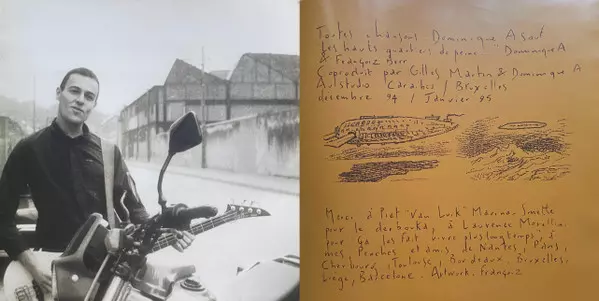 Toutes chansons Dominique A sauf
"Les hauts quartiers de peine" Dominique A
& Françoiz Breut
Coproduit par Gilles Martin & Dominique A
Au studio Caraïbes / Bruxelles
décembre 94 / Janvier 95
Merci à Piet "Van Luik" Marina, Smette
pour le derbouka, à Laurence Morellia
pour ça les fait vivre plus longtemps, à
mes Proches et amis de Nantes, Paris,
Cherbourg, Toulouse, Bordeaux, Bruxelles,
Liège, Barcelone. Artwork. Françoiz